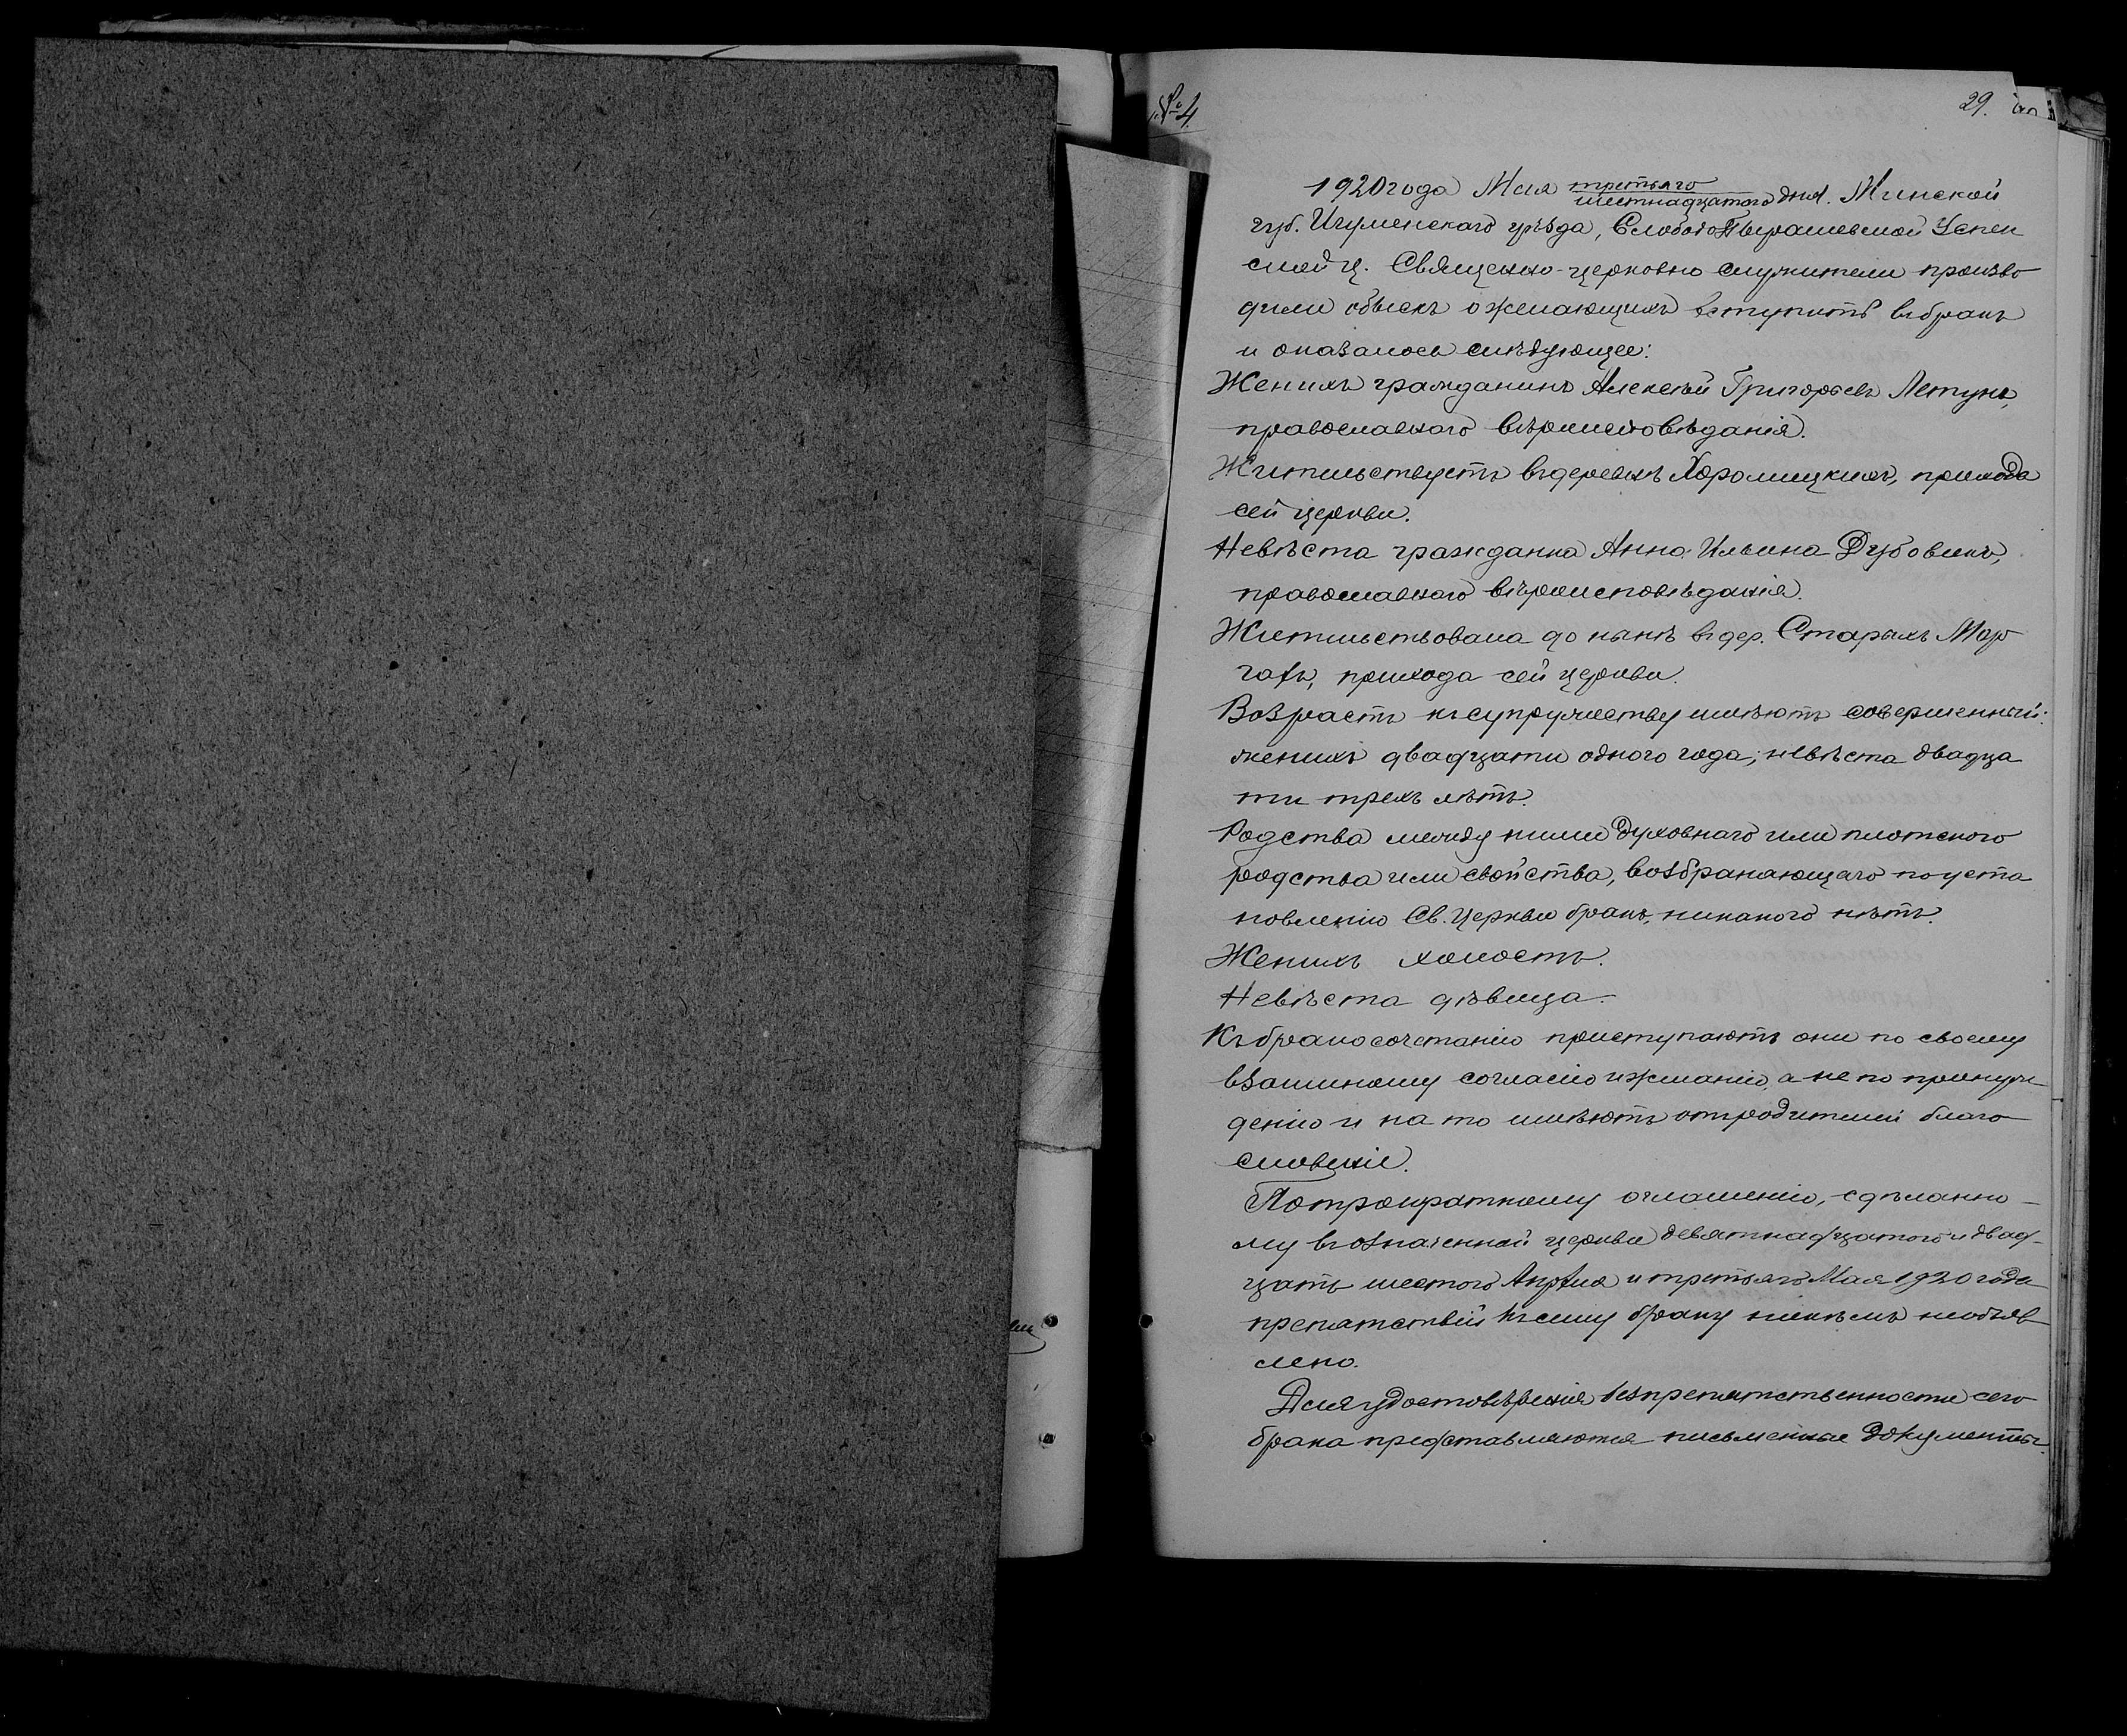 № 4
29.
1920 года Мая третьяго
шестнадцатого дня. Минской
губ. Игуменскаго уѣзда, Слободо Пырашевской Успен
ской ц. Священно-церковно служители произво
дили обыскъ о желающихъ вступить въ бракъ
и оказалось слѣдующее:
Женихъ гражданинъ Алексѣй Григорьевъ Летунъ,
православнаго вѣроисповѣданія.
Жительствуетъ въ деревнѣ Хоромицкихъ, прихода
сей церкви.
Невѣста гражданка Анна Ильина Дубовикъ,
православнаго вѣроисповѣданія.
Жительствовала до нынѣ въ дер. Старыхъ Мар
гахъ, прихода сей церкви.
Возрастъ къ супружеству имѣютъ совершенный:
женихъ двадцати одного года; невѣста двадца
ти трехъ лѣтъ.
Родства между ними духовнаго или плотского
родства или свойства, возбраняющаго по уста
новленію Св. Церкви бракъ, никакого нѣтъ.
Женихъ холостъ.
Невѣста дѣвица.
Къ бракосочетанію приступаютъ они по своему
взаимному согласію и желанію, а не по принуж
денію и на то имѣютъ отъ родителей благо
словеніе.
По троекратному оглашенію, сдѣланно-
му въ означенной церкви девятнадцатого и двад-
цать шестого Апрѣля и третьяго Мая 1920 года
препятствій къ сему браку никѣмъ не объяв
лено.
Для удостовѣренія безпрепятственности сего
брака представляются письменные документы.